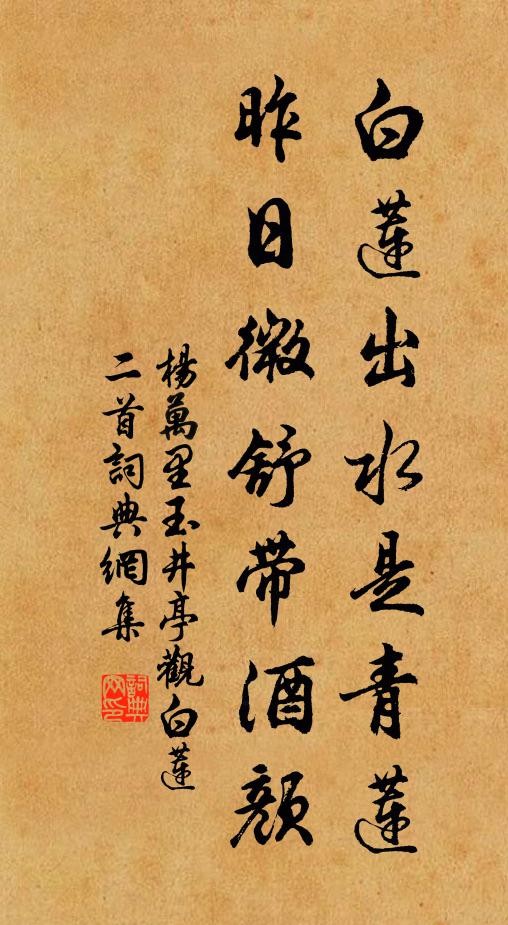 白蓮出水是青蓮
昨日微舒带酒顔
楊萬里玉井亭觀白蓮
二首詞典網集
詞典网印